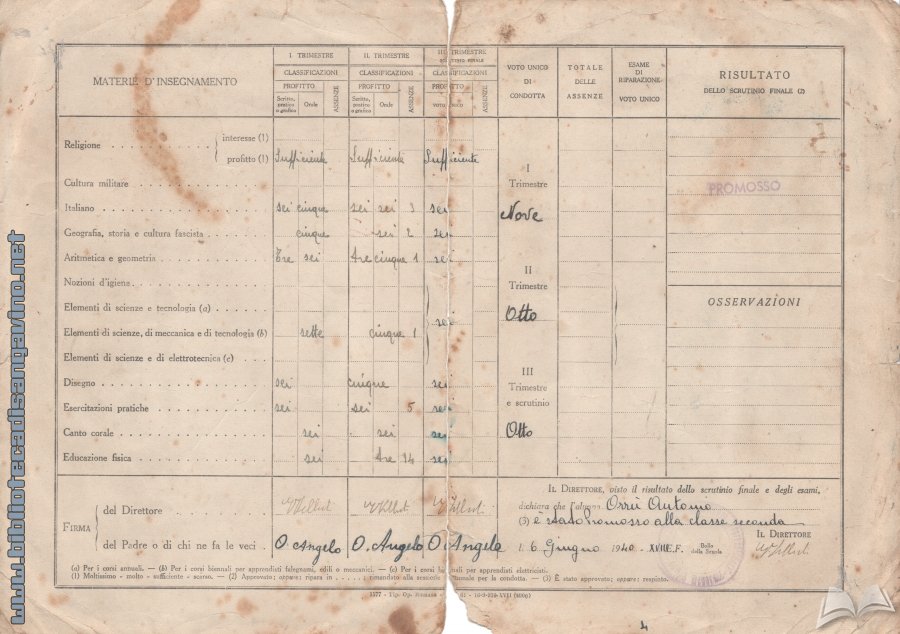 I TRIMESTRE II. TRIMESTRE III. TRIMESTRE
SCRUTINIO FINALE
MATERIE D'INSEGNAMENTO
CLASSIFICAZIONI CLASSIFICAZIONI CLASSIFICAZIONI
PROFITTO ASSENZE PROFITTO ASSENZE PROFITTO ASSENZE
Scritto, pratico o grafico Orale Scritto, pratico o grafico Orale VOTO UNICO
VOTO UNICO DI CONDOTTA
TOTALE DELLE ASSENZE
ESAME DI RIPARAZIONE VOTO UNICO
RISULTATO
DELLO SCRUTINIO FINALE (2)
Religione interesse (1)
profitto (1) Sufficiente Sufficiente Sufficiente
Cultura militare
Italiano sei cinque sei sei 3 sei
Geografia, storia e cultura fascista cinque sei 2 sei
Aritmetica e geometria Tre sei tre cinque 1 sei
Nozioni d'igiene
Elementi di scienze e tecnologia (a)
sei
Elementi di scienze, di meccanica e di tecnologia (b) sette cinque 1
Elementi di scienze e di elettrotecnica (c)
Disegno sei cinque sei
Esercitazioni pratiche sei sei 5 sei
Canto corale sei sei sei
Educazione fisica sei tre 14 sei
I
Trimestre
Nove
II
Trimestre
Otto
III
Trimestre
e scrutinio
Otto
PROMOSSO
OSSERVAZIONI
FIRMA
del Direttore
del Padre o di chi ne fa le veci O Angelo O. Angelo O Angelo
IL DIRETTORE, visto il risultato dello scrutinio finale e degli esami,
dichiara che l'alunno Orrù Antonio
(3) è stato promosso alla classe seconda
IL DIRETTORE
6 Giugno 1940 - XVIII E.F. Bollo della Scuola
(a) Per i corsi annuali. — (b) Per i corsi biennali per apprendisti falegnami, edili o meccanici. — (c) Per i corsi biennali per apprendisti elettricisti.
(1) Moltissimo - molto - sufficiente - scarso. — (2) Approvato; oppure: ripara in mandato alla sessione per la condotta. — (3) È stato approvato; oppure: respinto.
1577 - Tip. Op. Romana
www.bibliotecadisangavino.net